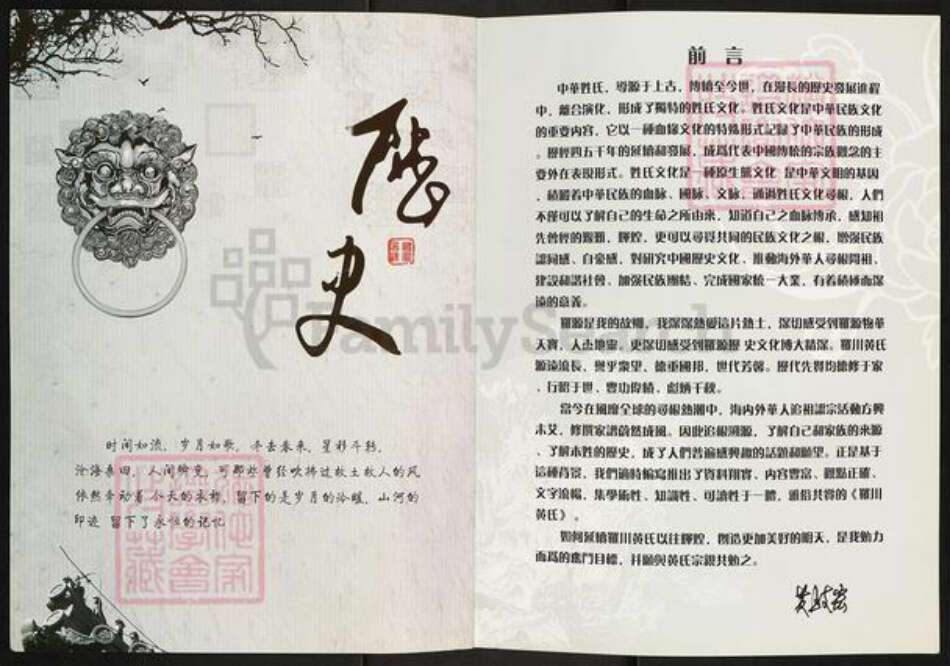 歷
史
时间如流，岁月如歌，冬去春来，星移斗转，
沧海桑田，人间瞬变，可那些曾经吹拂过故土故人的风
依然牵动着今天的衣襟，留下的是岁月的冷暖，山河的
印迹 留下了永恒的记忆
FamilySearch
前言
中華姓氏，導源于上古，傳續至今世，在漫長的歷史發展進程
中，離合演化，形成了獨特的姓氏文化。姓氏文化是中華民族文化
的重要内容，它以一種血緣文化的特殊形式記録了中華民族的形成
，歷經四五千年的延續和發展，成爲代表中國傳統的宗族觀念的主
要外在表現形式。姓氏文化是一種原生態文化 是中華文明的基因
，積澱着中華民族的血脉、國脉、文脉。通過姓氏文化尋根，人們
不僅可以了解自己的生命之所由來，知道自己之血脉傳承，感知祖
先曾經的艱難，輝煌，更可以尋覓共同的民族文化之根，增强民族
認同感、自豪感，對研究中國歷史文化、推動海外華人尋根問祖、
建設和諧社會、加强民族團結、完成國家統一大業，有着積極而深
遠的意義。
羅源是我的故鄉，我深深熱愛這片熱土，深切感受到羅源物華
天寶，人杰地靈，更深切感受到羅源歷 史文化博大精深。羅川黄氏
源遠流長，譽乎衆望，德重國邦，世代芳馨。歷代先賢均德修于家
，行昭于世，豐功偉績，彪炳千秋。
當今在風靡全球的尋根熱潮中，海内外華人追祖認宗活動方興
未艾，修撰家譜蔚然成風。因此追根溯源，了解自己和家族的來源
，了解本姓的歷史，成了人們普遍感興趣的話題和願望。正是基于
這種背景，我們適時編寫推出了資料翔實、内容豐富、觀點正確、
文字流暢，集學術性、知識性、可讀性于一體，雅俗共賞的《羅川
黄氏》。
如何延續羅川黄氏以往輝煌，創造更加美好的明天，是我勉力
而爲的奮鬥目標，并願與黄氏宗親共勉之。